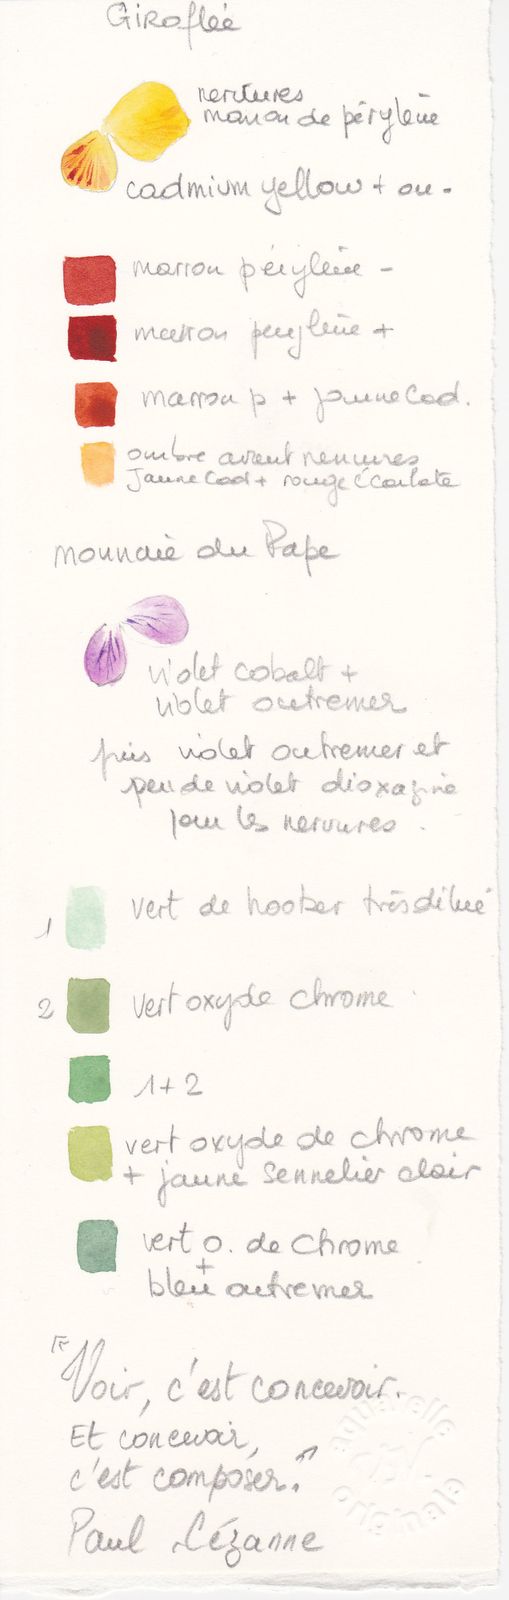 Giroflée
nervures
marron de pérylène
cadmium yellow + ou -
marron pérylène -
marron pérylène +
marron p + jaune Cad.
ombre avant nervures
Jaune Cad + rouge écarlate
monnaie du Pape
violet cobalt +
violet outremer
puis violet outremer et
peu de violet dioxazine
pour les nervures .
1 vert de hooker très dilué
2 vert oxyde chrome
1+2
vert oxyde de chrome
+ jaune Sennelier clair
vert o. de chrome
+
bleu outremer
"Voir, c'est concevoir.
Et concevoir,
c'est composer."
Paul Cézanne
aquarelle
originale